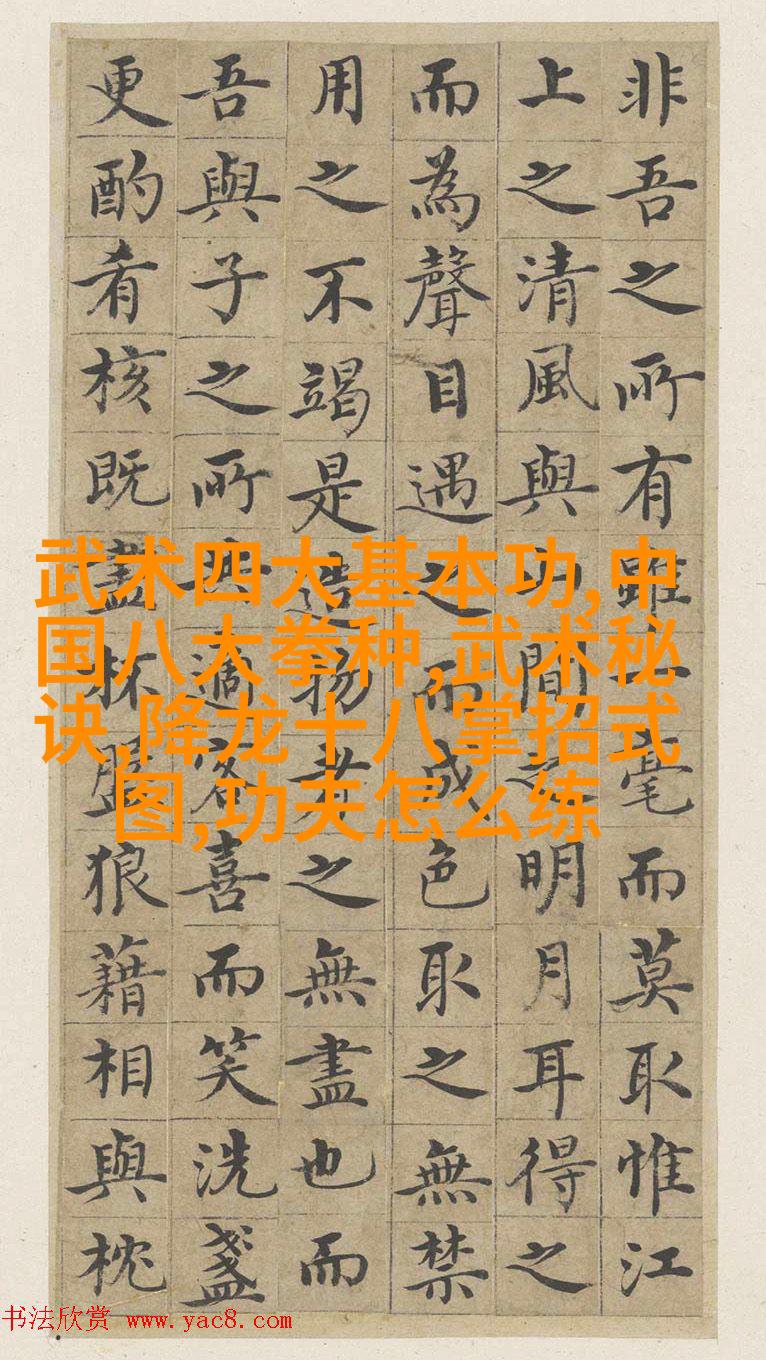 非吾之所有雖一毫而莫取惟江
上之清風與山間之明月耳得之
而為聲目遇之而成色取之無禁
用之不竭是造物者之無盡也而
吾與子之所共適客喜而笑洗盞
更酌肴核既盡杯盤狼藉相與枕
武术四大基本功,中
国八大拳种,武术秘
诀,降龙十八掌招式
图,功夫怎么练
书法欣赏 www.yac8.com